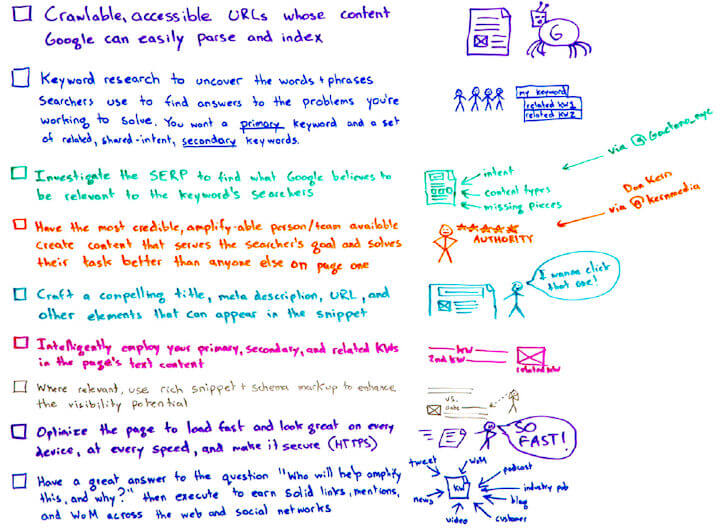 Crawlable, accessible URLs whose content
Google can easily parse and index
G
Keyword research to uncover the words + phrases
searchers use to find answers to the problems you're
working to solve. You want a primary keyword and a set
of related, shared-intent, secondary keywords.
my keyword
related KW1
related KW2
Investigate the SERP to find what Google believes to
be relevant to the keyword's searchers
intent
content types
missing pieces
via @Gaetano_nyc
Have the most credible, amplify-able person/team available
create content that serves the searcher's goal and solves
their task better than anyone else on page one
AUTHORITY
Dan Kern
via @kernmedia
Craft a compelling title, meta description, URL, and
other elements that can appear in the snippet
I wanna click
that one!
Intelligently employ your primary, secondary, and related KWs
in the page's text content
KW
2nd KW
related KW
Where relevant, use rich snippet + schema markup to enhance
the visibility potential
vs.
Optimize the page to load fast and look great on every
device, at every speed, and make it secure (HTTPS)
SO
FAST!
Have a great answer to the question "Who will help amplify
this, and why?" then execute to earn solid links, mentions,
and WoM across the web and social networks
tweet
WoM
podcast
industry pub
blog
customer
video
news
KW